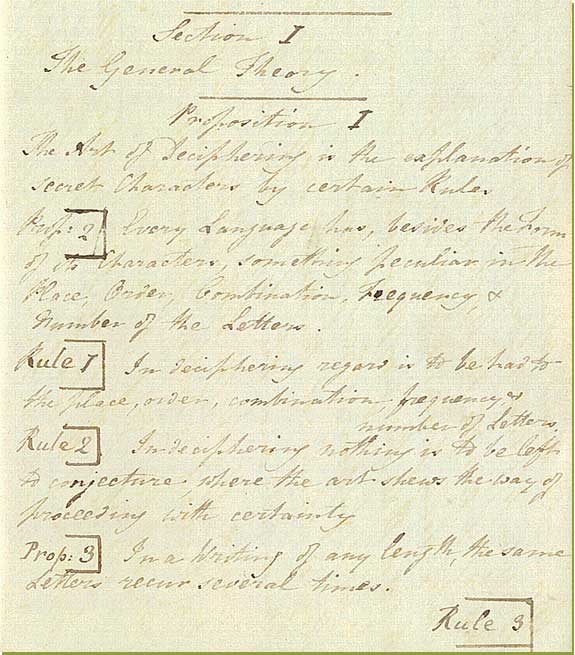 Section I
The General Theory.
Proposition I
The Art of Deciphering is the explanation of
secret Characters by certain Rules
Prop: 2 Every Language has, besides the Form
of its Characters, something peculiar in the
Place, Order, Combination, Frequency, &
Number of the Letters.
Rule 1 In deciphering regard is to be had to
the place, order, combination, frequency &
number of Letters,
Rule 2 In deciphering nothing is to be left
to conjecture where the art shews the way of
proceeding with certainty
Prop: 3 In a Writing of any length, the same
Letters recur several times.
Rule 3